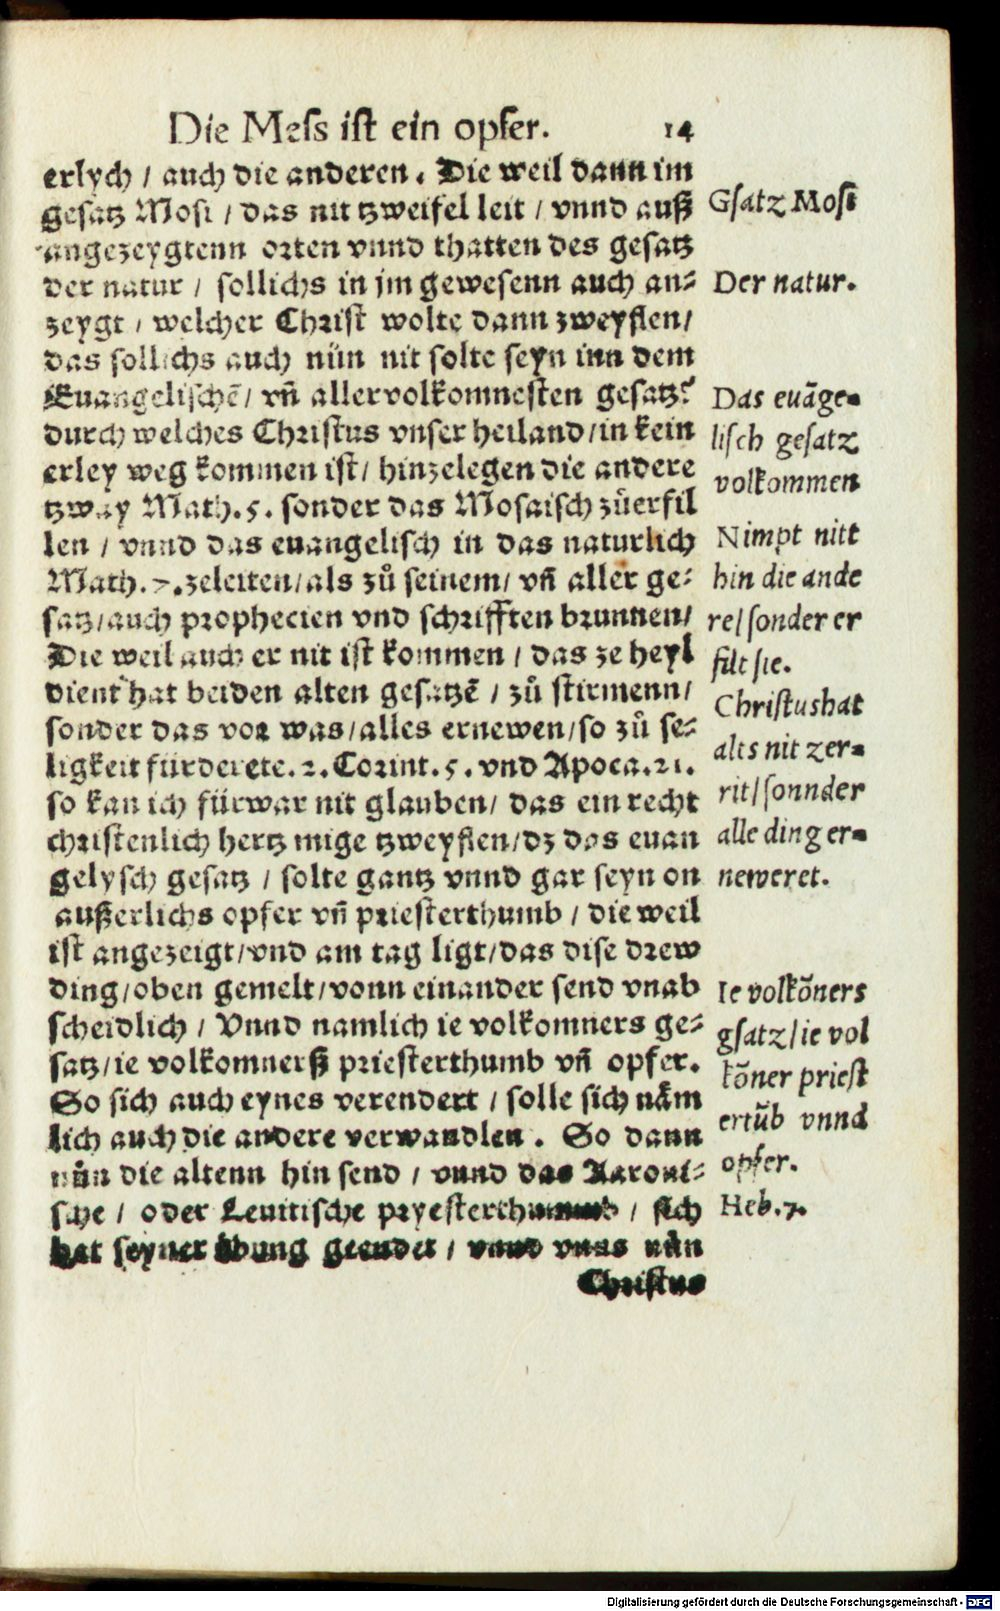 Die Mess ist ein opfer. 14
erlych / auch die anderen. Die weil dann im
gesatz Mosi / das nit tzweifel leit / vnnd auß
angezeygtenn orten vnnd thatten des gesatz
der natur / sollichs in jm gewesenn auch an⸗
zeygt / welcher Christ wolte dann zweyflen /
das sollichs auch nün nit solte seyn inn dem
Euangelischē / vn̄ allervolkomnesten gesatz?
durch welches Christus vnser heiland / in kein
erley weg kommen ist / hinzelegen die andere
tzway Math. 5. sonder das Mosaisch zůerfil
len / vnnd das euangelisch in das naturlich
Math. 7. zeleiten / als zů seinem / vn̄ aller ge⸗
satz / auch prophecien vnd schrifften brunnen /
Die weil auch er nit ist kommen / das ze heyl
dient hat beiden alten gesatzē / zů stirmenn /
sonder das vor was / alles ernewen / so zů se⸗
ligkeit fürderete. 2. Corint. 5. vnd Apoca. 21.
so kan ich fürwar nit glauben / das ein recht
christenlich hertz mige tzweyflen / dz das euan
gelysch gesatz / solte gantz vnnd gar seyn on
außerlichs opfer vn̄ priesterthumb / die weil
ist angezeigt / vnd am tag ligt / das dise drew
ding / oben gemelt / vonn einander send vnab
scheidlich / Vnnd namlich ie volkomners ge⸗
satz / ie volkomnerß priesterthumb vn̄ opfer.
So sich auch eynes verendert / solle sich nåm
lich auch die andere verwandlen. So dann
nůn die altenn hin send / vnnd das Aaroni⸗
sche / oder Leuitische pryesterthummb / sich
hat seyner übung geendet / vnnd vnns nůn
Christus
Gsatz Mosi
Der natur.
Das euāge⸗
lisch gesatz
volkommen
Nimpt nitt
hin die ande
re / sonder er
filt sie.
Christus hat
alts nit zer⸗
rit / sonnder
alle ding er⸗
neweret.
Ie volkōners
gsatz / ie vol
kōner priest
ertūb vnnd
opfer.
Heb. 7.
Digitalisierung gefördert durch die Deutsche Forschungsgemeinschaft - DFG